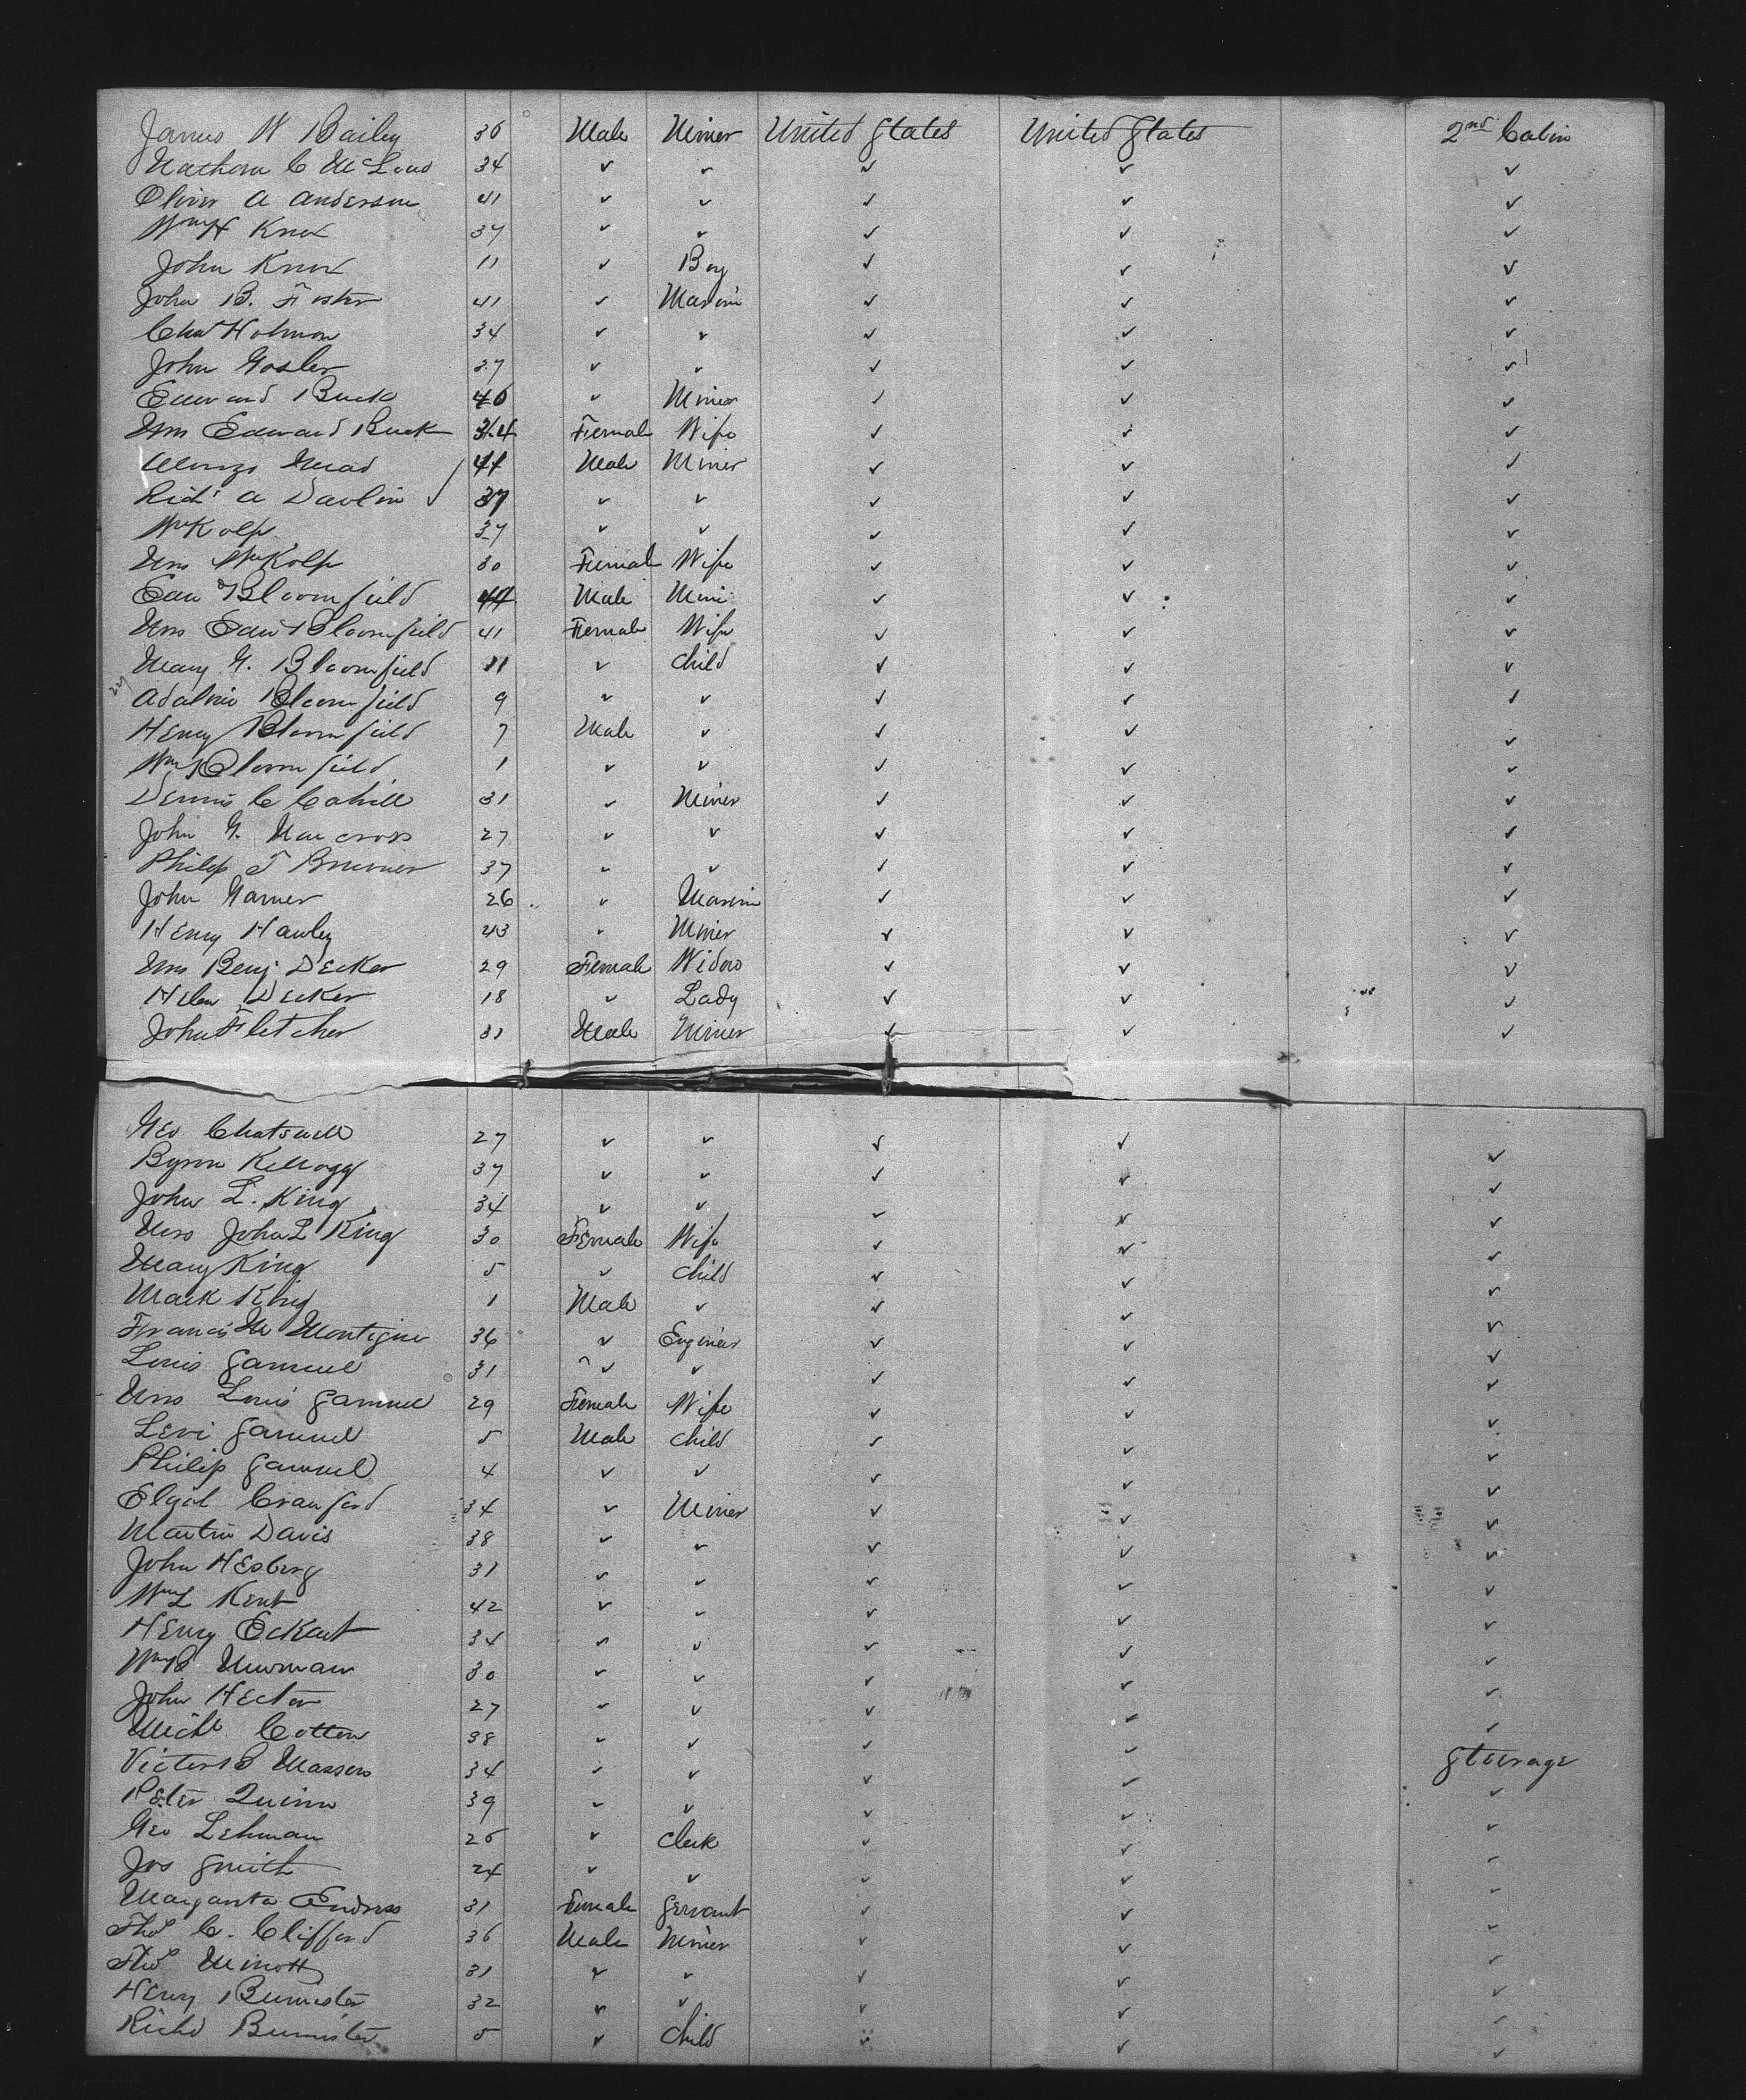 James W Bailey 36 Male Miner United States United States 2nd Cabin
Nathan C McLoud 34 ✓ ✓ ✓ ✓ ✓
Oliver A Anderson 41 ✓ ✓ ✓ ✓ ✓
Wm H Knox 37 ✓ ✓ ✓ ✓ ✓
John Knox 11 ✓ Boy ✓ ✓ ✓
John B. Foster 41 ✓ Marine ✓ ✓ ✓
Chas Holmon 34 ✓ ✓ ✓ ✓ ✓
John Gosler 27 ✓ ✓ ✓ ✓ ✓
Edward Buck 40 ✓ Miner ✓ ✓ ✓
Mrs Edward Buck 34 Female Wife ✓ ✓ ✓
Alonzo Mead 44 Male Miner ✓ ✓ ✓
Richd A Davlin 37 ✓ ✓ ✓ ✓ ✓
Wm Kolp 37 ✓ ✓ ✓ ✓ ✓
Mrs Wm Kolp 30 Female Wife ✓ ✓ ✓
Edw Bloomfield 44 Male Mine ✓ ✓ ✓
Mrs Edw Bloomfield 41 Female Wife ✓ ✓ ✓
Mary G. Bloomfield 11 ✓ Child ✓ ✓ ✓
Adalnie Bloomfield 9 ✓ ✓ ✓ ✓ ✓
Henry Bloomfield 7 Male ✓ ✓ ✓ ✓
Wm Bloomfield 1 ✓ ✓ ✓ ✓ ✓
Dennis C Cahill 31 ✓ Miner ✓ ✓ ✓
John G. Narcross 27 ✓ ✓ ✓ ✓ ✓
Philip T Bruner 37 ✓ ✓ ✓ ✓ ✓
John Garner 26 ✓ Marine ✓ ✓ ✓
Henry Hawley 43 ✓ Miner ✓ ✓ ✓
Mrs Benj Decker 29 Female Widow ✓ ✓ ✓
Helen Decker 18 ✓ Lady ✓ ✓ ✓
John Fletcher 31 Male Miner ✓ ✓ ✓
Geo Chatswell 27 ✓ ✓ ✓ ✓ ✓
Byron Kellogg 37 ✓ ✓ ✓ ✓ ✓
John L. King 34 ✓ ✓ ✓ ✓ ✓
Mrs John L King 30 Female Wife ✓ ✓ ✓
Mary King 5 ✓ Child ✓ ✓ ✓
Mark King 1 Male ✓ ✓ ✓ ✓
Francis M Montigue 36 ✓ Engineer ✓ ✓ ✓
Louis Samuel 31 ✓ ✓ ✓ ✓ ✓
Mrs Louis Samuel 29 Female Wife ✓ ✓ ✓
Levi Samuel 5 Male Child ✓ ✓ ✓
Philip Samuel 4 ✓ ✓ ✓ ✓ ✓
Elijah Crawford 34 ✓ Miner ✓ ✓ ✓
Martin Davis 38 ✓ ✓ ✓ ✓ ✓
John Hesberg 31 ✓ ✓ ✓ ✓ ✓
Wm L Kent 42 ✓ ✓ ✓ ✓ ✓
Henry Eckart 34 ✓ ✓ ✓ ✓ ✓
Wm B Newman 30 ✓ ✓ ✓ ✓ ✓
John Hector 27 ✓ ✓ ✓ ✓ ✓
Michl Cotton 38 ✓ ✓ ✓ ✓ ✓
Victor B Massen 34 ✓ ✓ ✓ ✓ Steerage
Peter Quinn 39 ✓ ✓ ✓ ✓ ✓
Geo Lehman 26 ✓ Clerk ✓ ✓ ✓
Jos Smith 24 ✓ ✓ ✓ ✓ ✓
Margarita Endress 31 Female Servant ✓ ✓ ✓
Thos C. Clifford 36 Male Miner ✓ ✓ ✓
Thos Minott 31 ✓ ✓ ✓ ✓ ✓
Henry Burmister 32 ✓ ✓ ✓ ✓ ✓
Richd Burmister 5 ✓ Child ✓ ✓ ✓